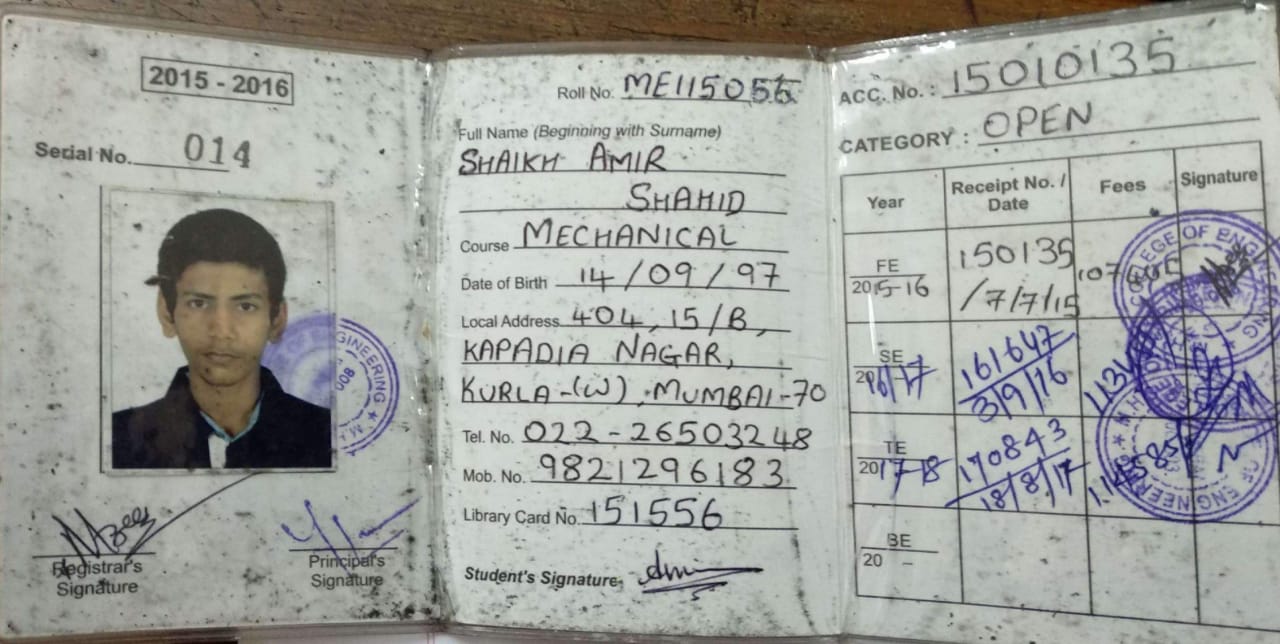 2015 - 2016
Serial No. 014
Registrar's
Signature
Principal's
Signature
Roll No. ME115056
Full Name (Beginning with Surname)
SHAIKH AMIR
SHAHID
Course MECHANICAL
Date of Birth 14/09/97
Local Address 404, 15/B,
KAPADIA NAGAR,
KURLA-(W), MUMBAI-70
Tel. No. 022-26503248
Mob. No. 9821296183
Library Card No. 151556
Student's Signature
ACC. No. : 15010135
CATEGORY : OPEN
Year Receipt No. / Date Fees Signature
FE
2015-16 150135
/7/7/15
SE
2016-17 161647
3/9/16
TE
2017-18 170843
18/8/17
BE
20 –
COLLEGE OF ENGINEERING
OF ENGINEERING